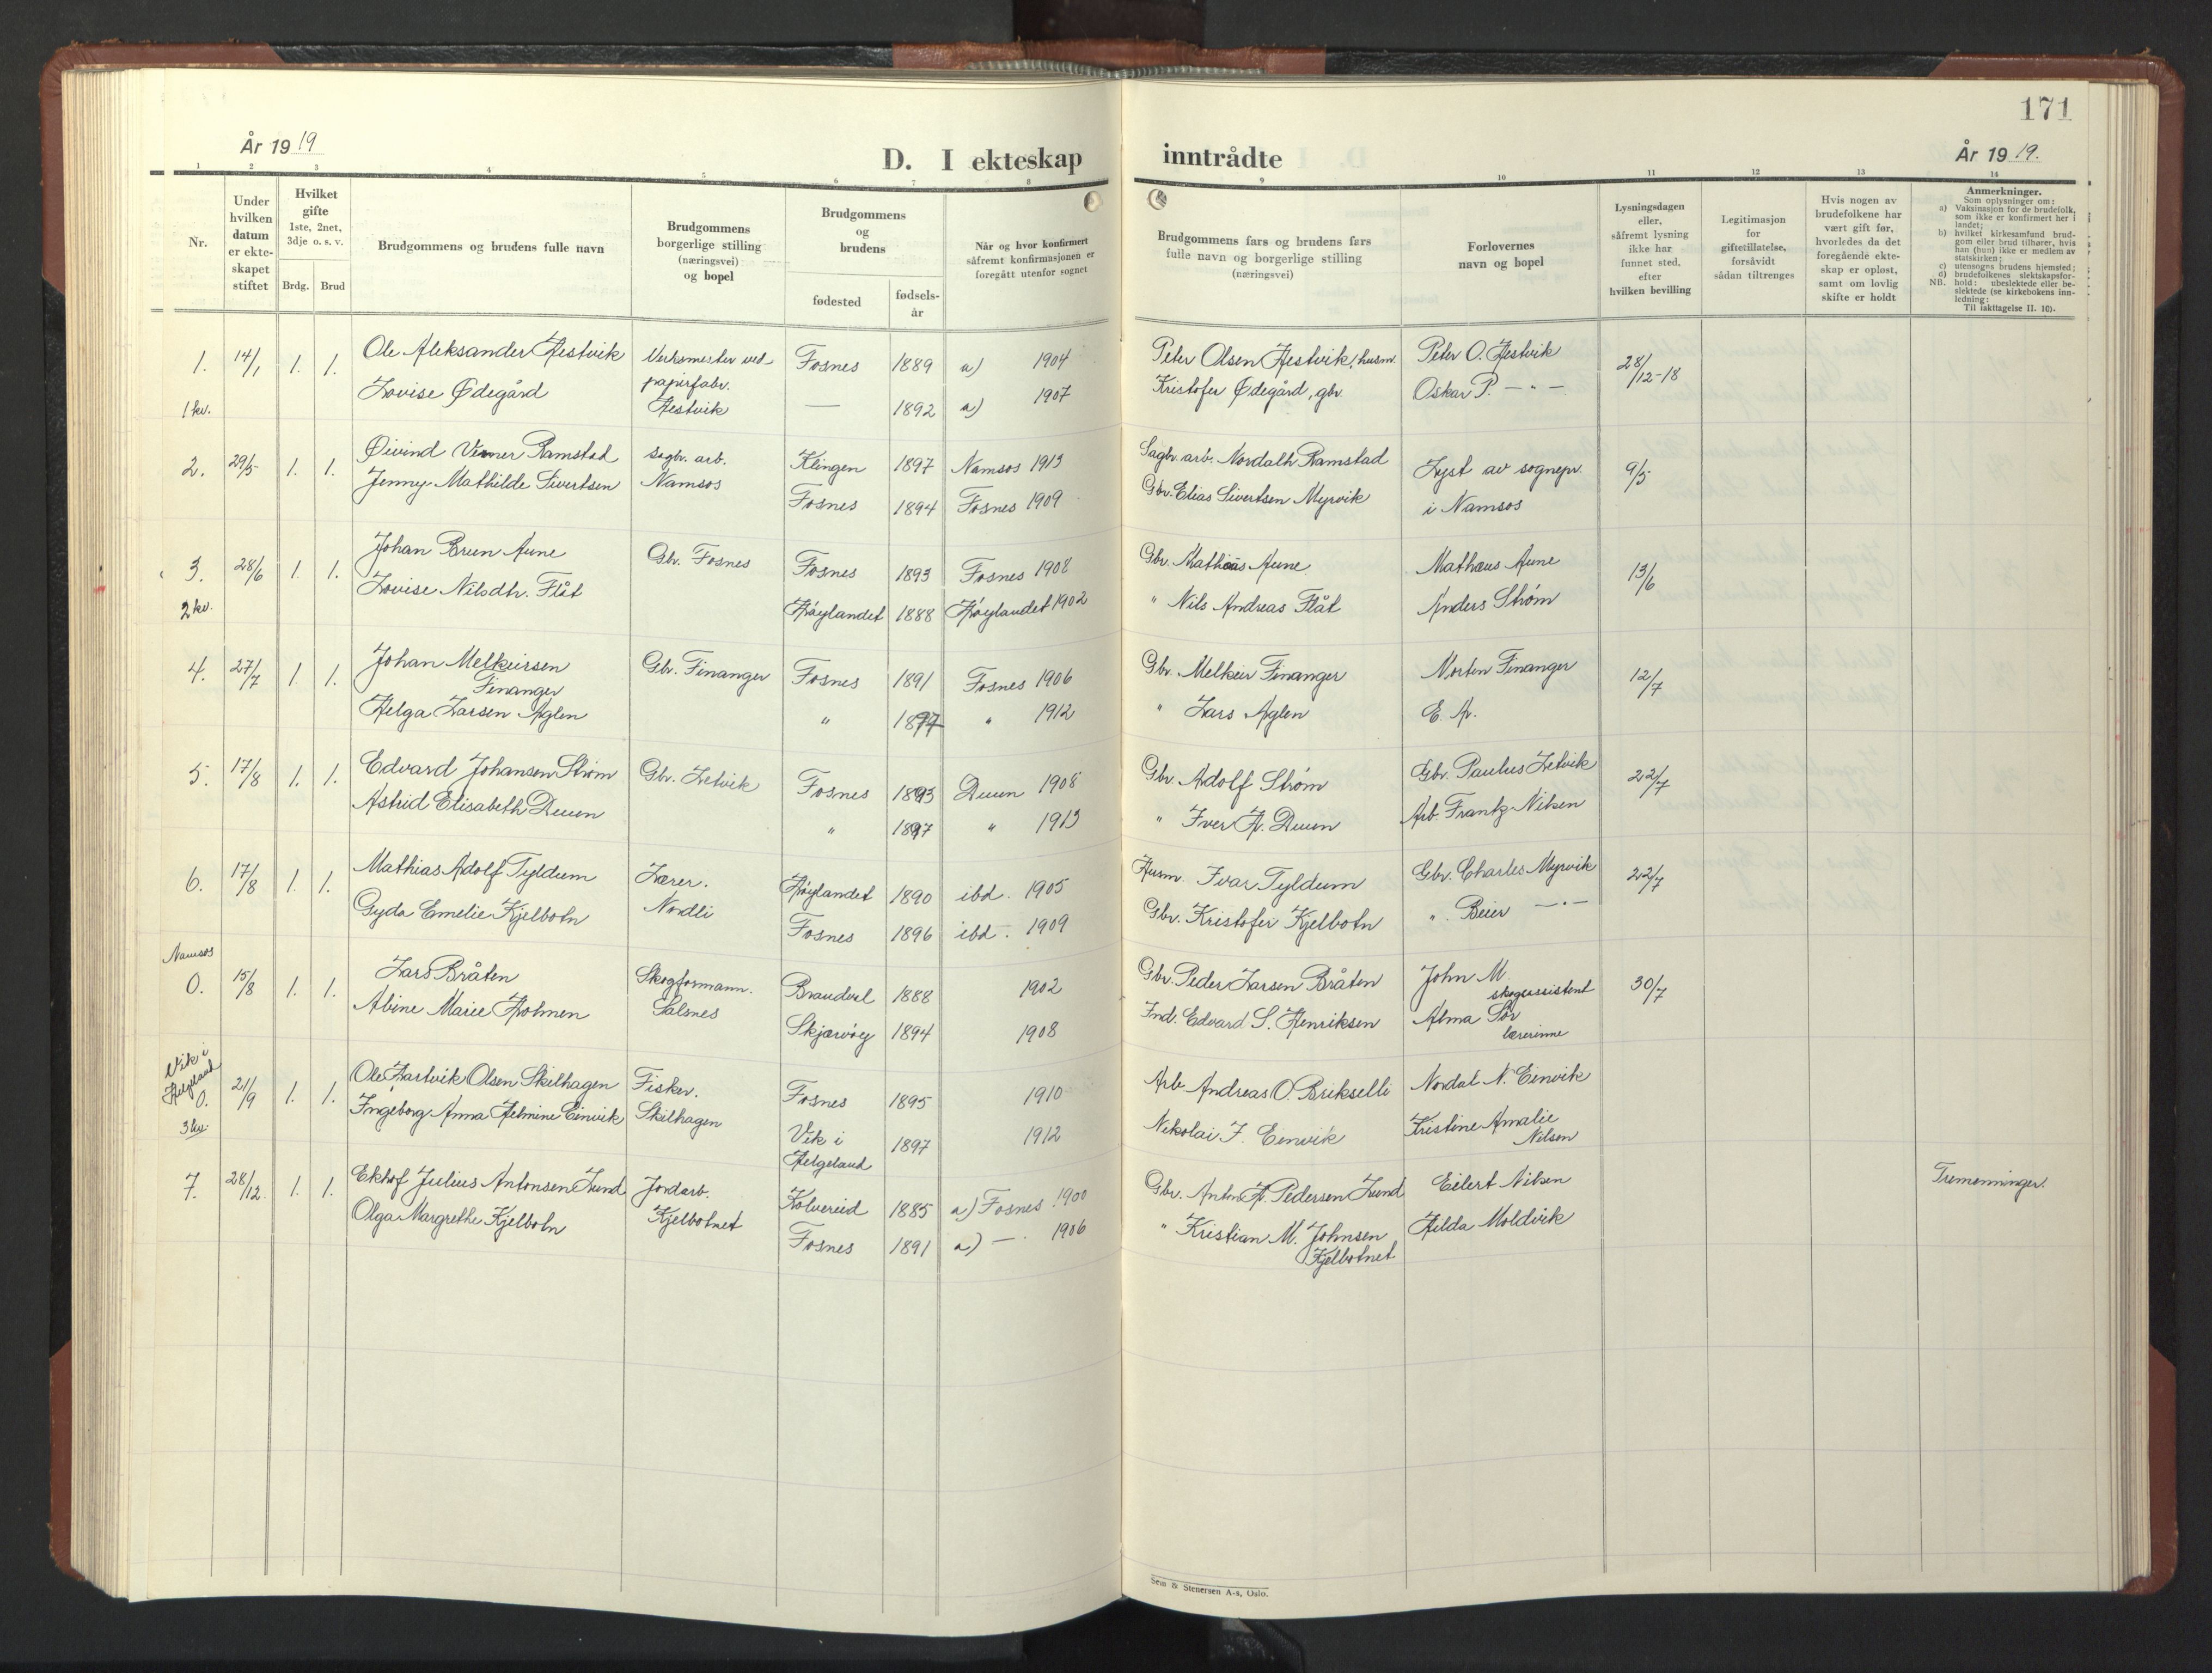 171
År 1919
D. I ekteskap inntrådte
År 1919.
1 2 3 4 5 6 7 8 9 10 11 12 13 14
Nr.
Under hvilken datum er ekte-skapet stiftet
Hvilket gifte 1ste, 2net, 3dje o. s. v.
Brdg. Brud
Brudgommens og brudens fulle navn
Brudgommens borgerlige stilling (næringsvei) og bopel
Brudgommens og brudens
fødested
fødsels-år
Når og hvor konfirmert såfremt konfirmasjonen er foregått utenfor sognet
Brudgommens fars og brudens fars fulle navn og borgerlige stilling (næringsvei)
Forlovernes navn og bopel
Lysningsdagen eller, såfremt lysning ikke har funnet sted, efter hvilken bevilling
Legitimasjon for giftetillatelse, forsåvidt sådan tiltrenges
Hvis nogen av brudefolkene har vært gift før, hvorledes da det foregående ekte-skap er opløst, samt om lovlig skifte er holdt
Anmerkninger.
Som oplysninger om:
a) Vaksinasjon for de brudefolk, som ikke er konfirmert her i landet;
b) hvilket kirkesamfund brud-gom eller brud tilhører, hvis han (hun) ikke er medlem av statskirken;
c) utensogns brudens hjemsted;
d) brudefolkenes slektskapsfor-hold: ubeslektede eller be-slektede (se kirkebokens inn-ledning:
NB.
Til iakttagelse II. 10).
1. 14/1 1. 1. Ole Aleksander Hestvik Verksmester ved Fosnes 1889 a) 1904 Peter Olsen Hestvik, husm. Peter O. Hestvik 28/12-18
papirfabr.
1 kv. Lovise Ødegård Hestvik — 1892 a) 1907 Kristofer Ødegård, gbr. Oskar P. — " —
2. 29/5 1. 1. Øivind Verner Ramstad Sagbr. arb. Klingen 1897 Namsos 1913 Sagbr. arb. Nordalh Ramstad Lyst av sognepr. 9/5
Jenny Mathilde Sivertsen Namsos Fosnes 1894 Fosnes 1909 Gbr. Elias Sivertsen Myrvik i Namsos
3. 28/6 1. 1. Johan Brun Aune Gbr. Fosnes Fosnes 1893 Fosnes 1908 Gbr. Mathias Aune Mathæus Aune 13/6
2 kv. Lovise Nilsdtr. Flåt Høylandet 1888 Høylandet 1902 " Nils Andreas Flåt Anders Strøm
4. 27/7 1. 1. Johan Melkeirsen Gbr. Finanger Fosnes 1891 Fosnes 1906 Gbr. Melkeir Finanger Morten Finanger 12/7
Finanger
Helga Larsen Aglen " 1897 " 1912 " Lars Aglen E. A.
5. 17/8 1. 1. Edvard Johansen Strøm Gbr. Letvik Fosnes 1893 Duun 1908 Gbr. Adolf Strøm Gbr. Paulus Letvik 22/7
Astrid Elisabeth Duun " 1897 " 1913 " Iver A. Duun Arb. Frantz Nilsen
6. 17/8 1. 1. Mathias Adolf Tyldum Lærer. Høylandet 1890 ibd. 1905 Husm. Ivar Tyldum Gbr. Charles Myrvik 22/7
Gyda Emelie Kjelbotn Nordli Fosnes 1896 ibd. 1909 Gbr. Kristofer Kjelbotn " Beier — " —
Namsos
0. 15/8 1. 1. Lars Bråten Skogformann. Brandval 1888 1902 Gbr. Peder Larsen Bråten John M. 30/7
skogassistent
Abine Marie Holmen Salsnes Skjærvøy 1894 1908 Ind. Edvard S. Henriksen Alma Sør
lærerinne
Vik i Helgeland
0. 21/9 1. 1. Ole Hartvik Olsen Skilhagen Fisker. Fosnes 1895 1910 Arb Andreas O. Brikselli Nordal N. Einvik
3 kv. Ingeborg Anna Helmine Einvik Skilhagen Vik i Helgeland 1897 1912 Nikolai J. Einvik Kristine Amalie Nilsen
7. 28/12 1. 1. Ekhof Julius Antonsen Lund Jordarb. Kolvereid 1885 a) Fosnes 1900 Gbr. Anton A. Pedersen Lund Eilert Nilsen Tremenninger.
Olga Margrethe Kjelbotn Kjelbotnet Fosnes 1891 a) — 1906 " Kristian M. Johnsen Hilda Moldvik
Kjelbotnet
Sem & Stenersen A-s, Oslo.